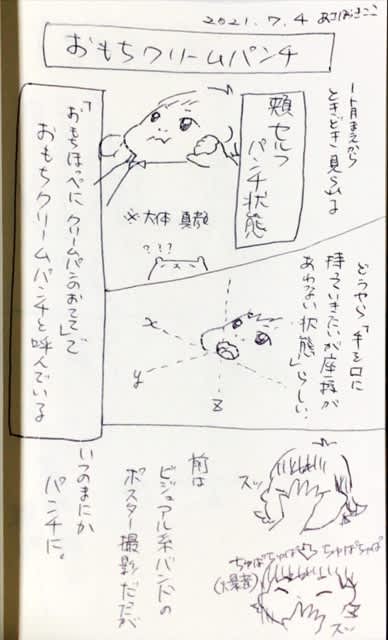 2021.7.4
おもちクリームパンチ
1ヶ月まえから
ときどき見られる
頬セルフ
パンチ状態
※大体 真顔
「おもちほっぺにクリームパンのおてて」で
おもちクリームパンチと呼んでいる
???
どうやら「手を口に
持っていきたいが座標が
あわない状態」らしい.
x
y
z
前は
ビジュアル系バンドの
ポスター撮影だったが
いつのまにか
パンチに。
スッ
ちゅぱちゅぱ
ちゅぱちゅぱ
スッ